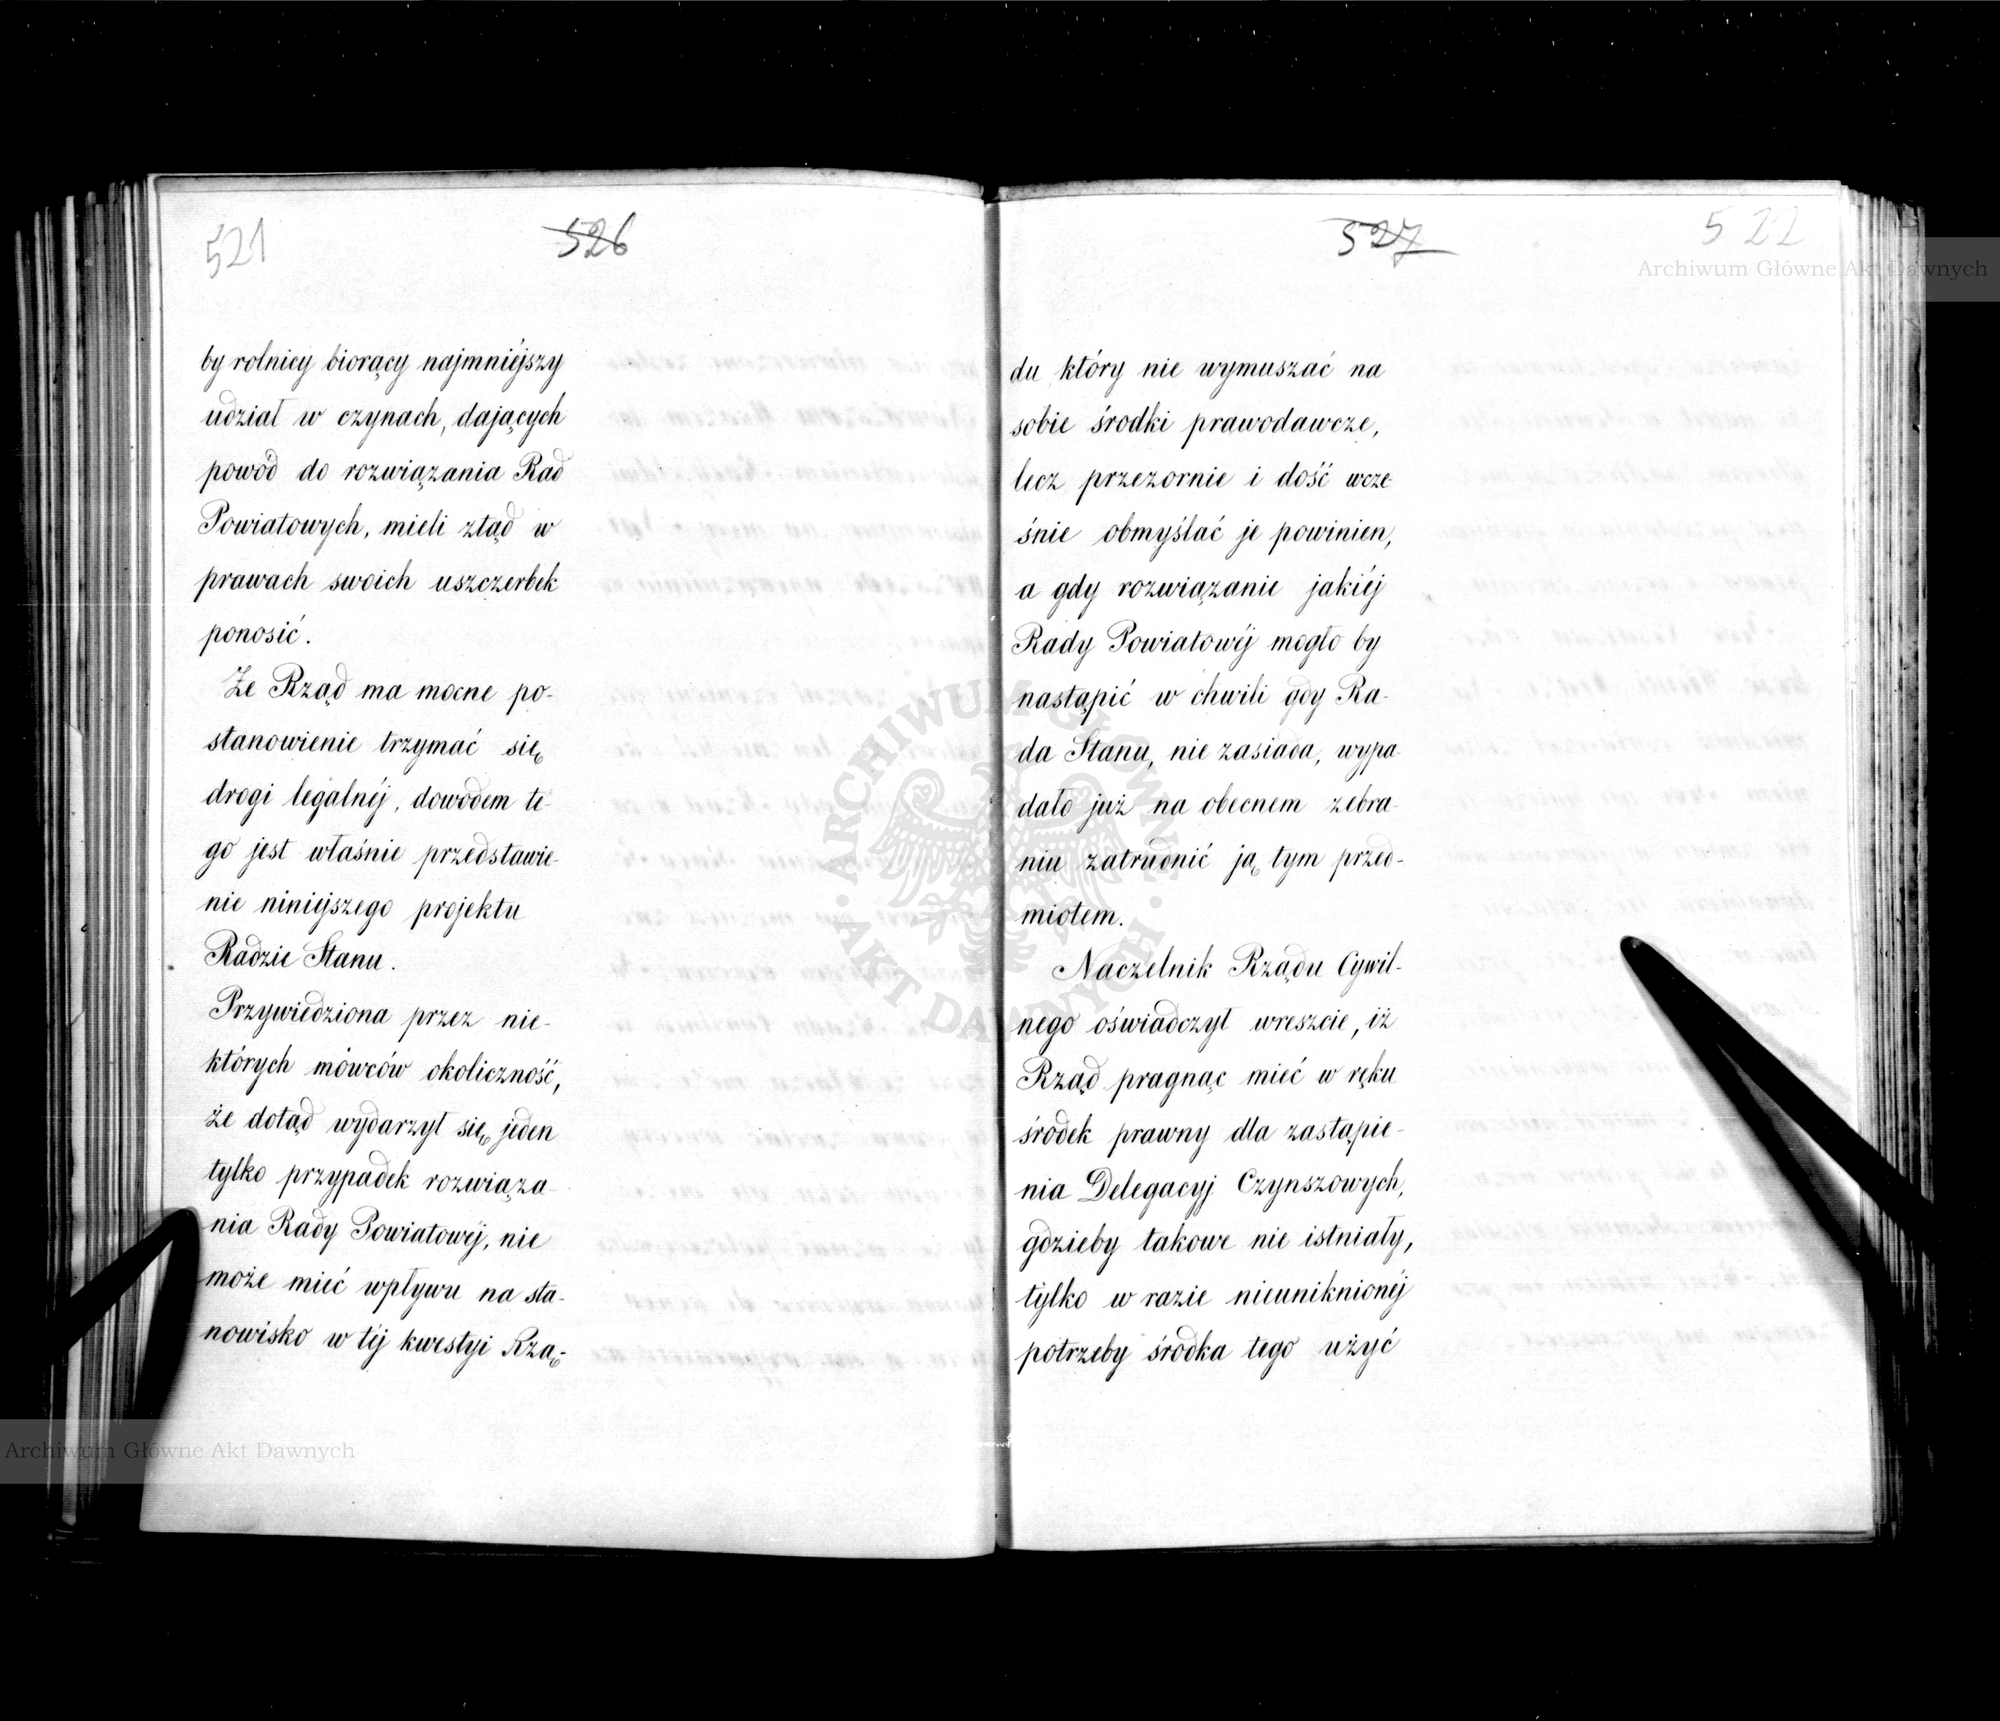 521
526
by rolnicy biorący najmniéjszy
udział w czynach, dających
powód do rozwiązania Rad
Powiatowych, mieli ztąd w
prawach swoich uszczerbek
ponosić.
Że Rząd ma mocne po-
stanowienie trzymać się
drogi legalnéj, dowodem te-
go jest właśnie przedstawie-
nie niniejszego projektu
Radzie Stanu.
Przywiedziona przez nie-
których mówców okoliczność,
że dotąd wydarzył się jeden
tylko przypadek rozwiąza-
nia Rady Powiatowéj, nie
może mieć wpływu na sta-
nowisko w téj kwestyi Rzą-
527
522
du który nie wymuszać na
sobie środki prawodawcze,
lecz przezornie i dość wcze-
śnie obmyślać je powinien,
a gdy rozwiązanie jakiéj
Rady Powiatowéj mogło by
nastąpić w chwili gdy Ra-
da Stanu, nie zasiada, wypa-
dało już na obecnem zebra-
niu zatrudnić ją tym przed-
miotem.
Naczelnik Rządu Cywil-
nego oświadczył wreszcie, iż
Rząd pragnąc mieć w ręku
środek prawny dla zastąpie-
nia Delegacyj Czynszowych,
gdzieby takowe nie istniały,
tylko w razie nieuniknionéj
potrzeby środka tego użyć
Archiwum Główne Akt Dawnych
ARCHIWUM GŁÓWNE AKT DAWNYCH
Archiwum Główne Akt Dawnych